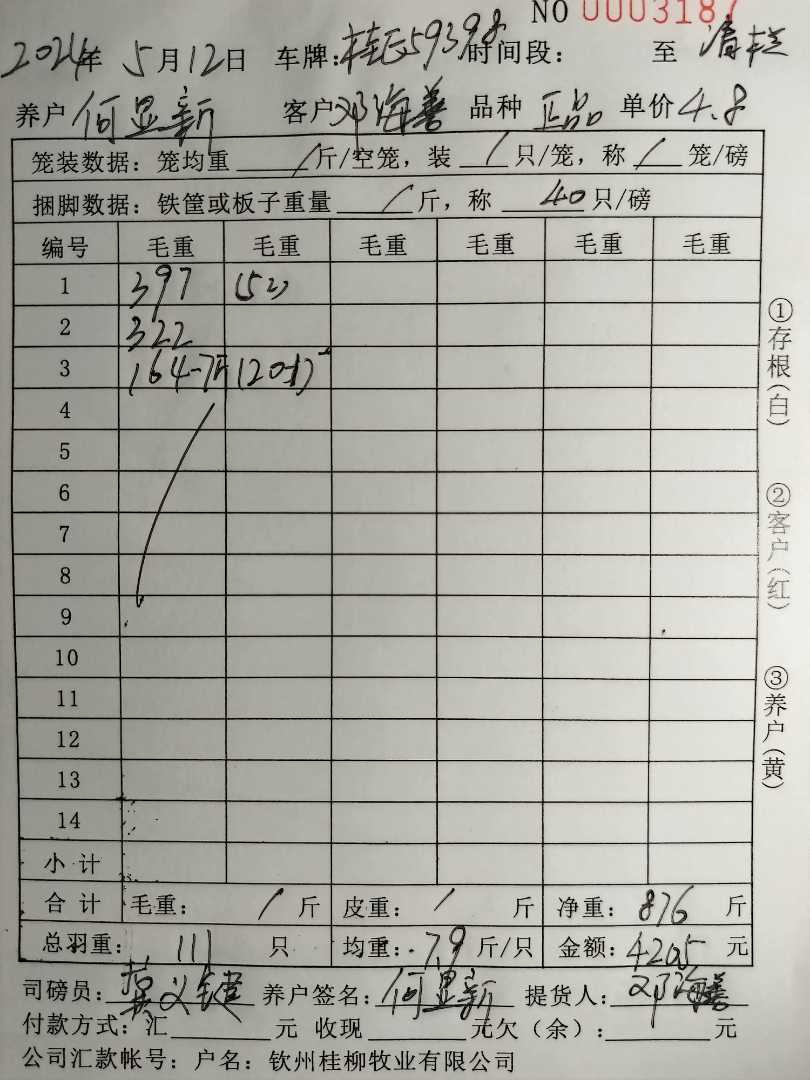 NO 0003187
2024年 5月12日 车牌:桂E59398 时间段: 至 清栏
养户 何显新 客户 邓海善 品种 正品 单价 4.8
笼装数据: 笼均重 / 斤/空笼, 装 / 只/笼, 称 / 笼/磅
捆脚数据: 铁筐或板子重量 / 斤, 称 40 只/磅
编号 毛重 毛重 毛重 毛重 毛重 毛重
1 397 (51)
2 322
3 164-7斤 (20只)
4
5
6
7
8
9
10
11
12
13
14
小计
合计 毛重: / 斤 皮重: / 斤 净重: 876 斤
总羽重: 111 只 均重: 7.9 斤/只 金额: 4205 元
司磅员: 养户签名: 何显新 提货人: 邓海善
付款方式: 汇 元 收现 元欠(余): 元
公司汇款帐号: 户名: 钦州桂柳牧业有限公司
①存根(白)
②客户(红)
③养户(黄)